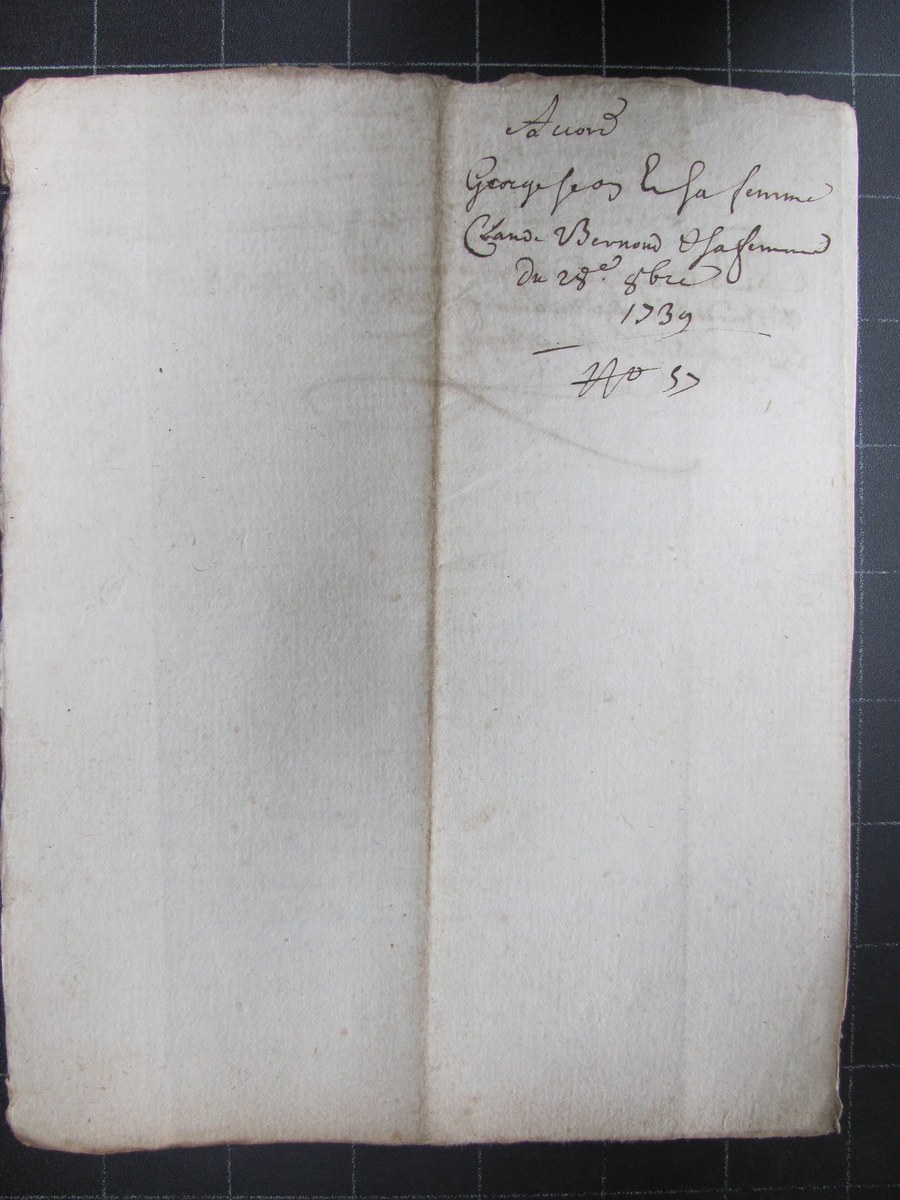 Accord
George Jean Et sa femme
Claude Bernord & sa femme
du 28e. 8bre
1739
No 57